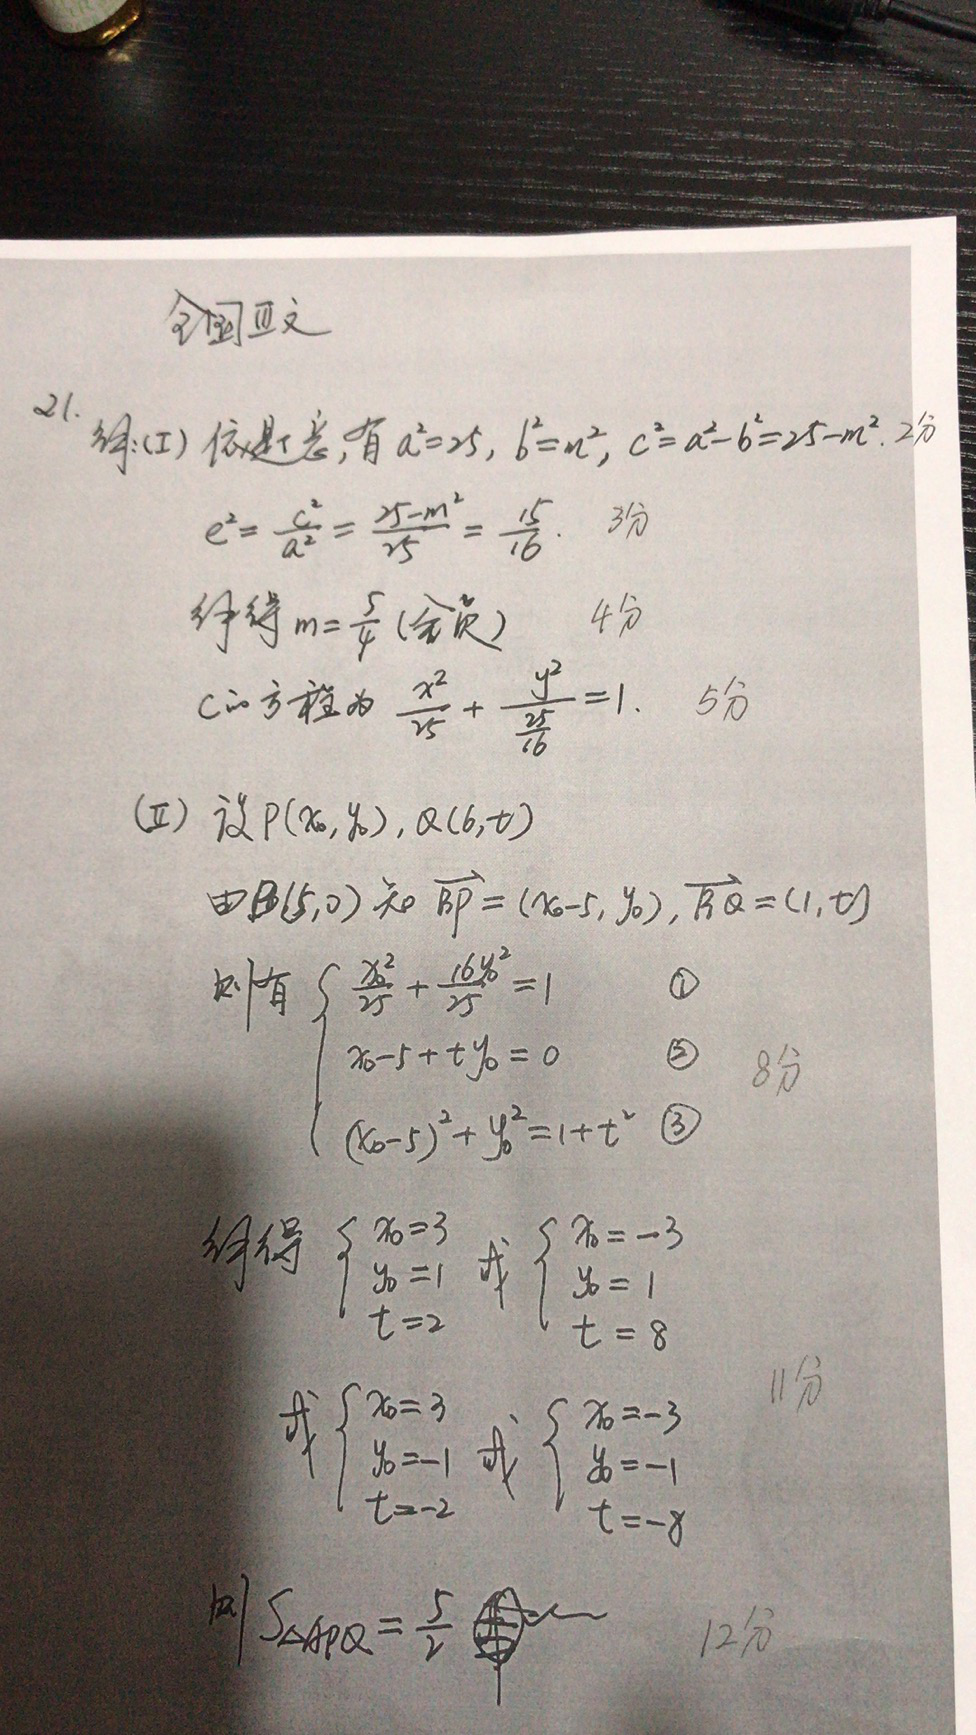 全国Ⅲ文
21.
解:(I) 依题意,有 a²=25, b²=m², c²=a²-b²=25-m². 2分
e²=c²/a²=(25-m²)/25=15/16. 3分
解得 m=5/4 (舍负) 4分
C的方程为 x²/25+y²/(25/16)=1. 5分
(II) 设P(x₀,y₀), Q(6,t)
由B(5,0) 知 BP→=(x₀-5,y₀), BQ→=(1,t)
则有 { x₀²/25+16y₀²/25=1 ①
x₀-5+ty₀=0 ② 8分
(x₀-5)²+y₀²=1+t² ③
解得 { x₀=3 或 { x₀=-3
y₀=1 y₀=1
t=2 t=8
11分
或 { x₀=3 或 { x₀=-3
y₀=-1 y₀=-1
t=-2 t=-8
则 S△APQ=5/2 12分